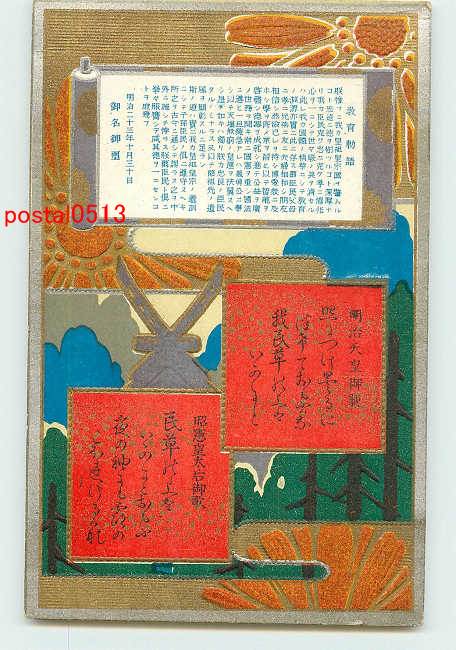 教育勅語
朕惟フニ我カ皇祖皇宗國ヲ肇ムル
コト宏遠ニ德ヲ樹ツルコト深厚ナ
リ我カ臣民克ク忠ニ克ク孝ニ億兆
心ヲ一ニシテ世世厥ノ美ヲ濟セル
ハ此レ我カ國體ノ精華ニシテ教育
ノ淵源亦實ニ此ニ存ス爾臣民父母
ニ孝ニ兄弟ニ友ニ夫婦相和シ朋友
相信シ恭儉己レヲ持シ博愛衆ニ及
ホシ學ヲ修メ業ヲ習ヒ以テ智能ヲ
啓發シ德器ヲ成就シ進テ公益ヲ廣
メ世務ヲ開キ常ニ國憲ヲ重シ國法
ニ遵ヒ一旦緩急アレハ義勇公ニ奉
シ以テ天壤無窮ノ皇運ヲ扶翼スヘ
シ是ノ如キハ獨リ朕カ忠良ノ臣民
タルノミナラス又以テ爾祖先ノ遺
風ヲ顯彰スルニ足ラン
斯ノ道ハ實ニ我カ皇祖皇宗ノ遺訓
ニシテ子孫臣民ノ俱ニ遵守スヘキ
所之ヲ古今ニ通シテ謬ラス之ヲ中
外ニ施シテ悖ラス朕爾臣民ト俱ニ
拳々服膺シテ咸其德ヲ一ニセンコ
トヲ庶幾フ
明治二十三年十月三十日
御名御璽
postal0513
明治天皇御製
照るにつけ曇るに
つけておもふかな
我民草の上は
いかにと
昭憲皇太后御歌
民草の上を
夜の袖にも露の